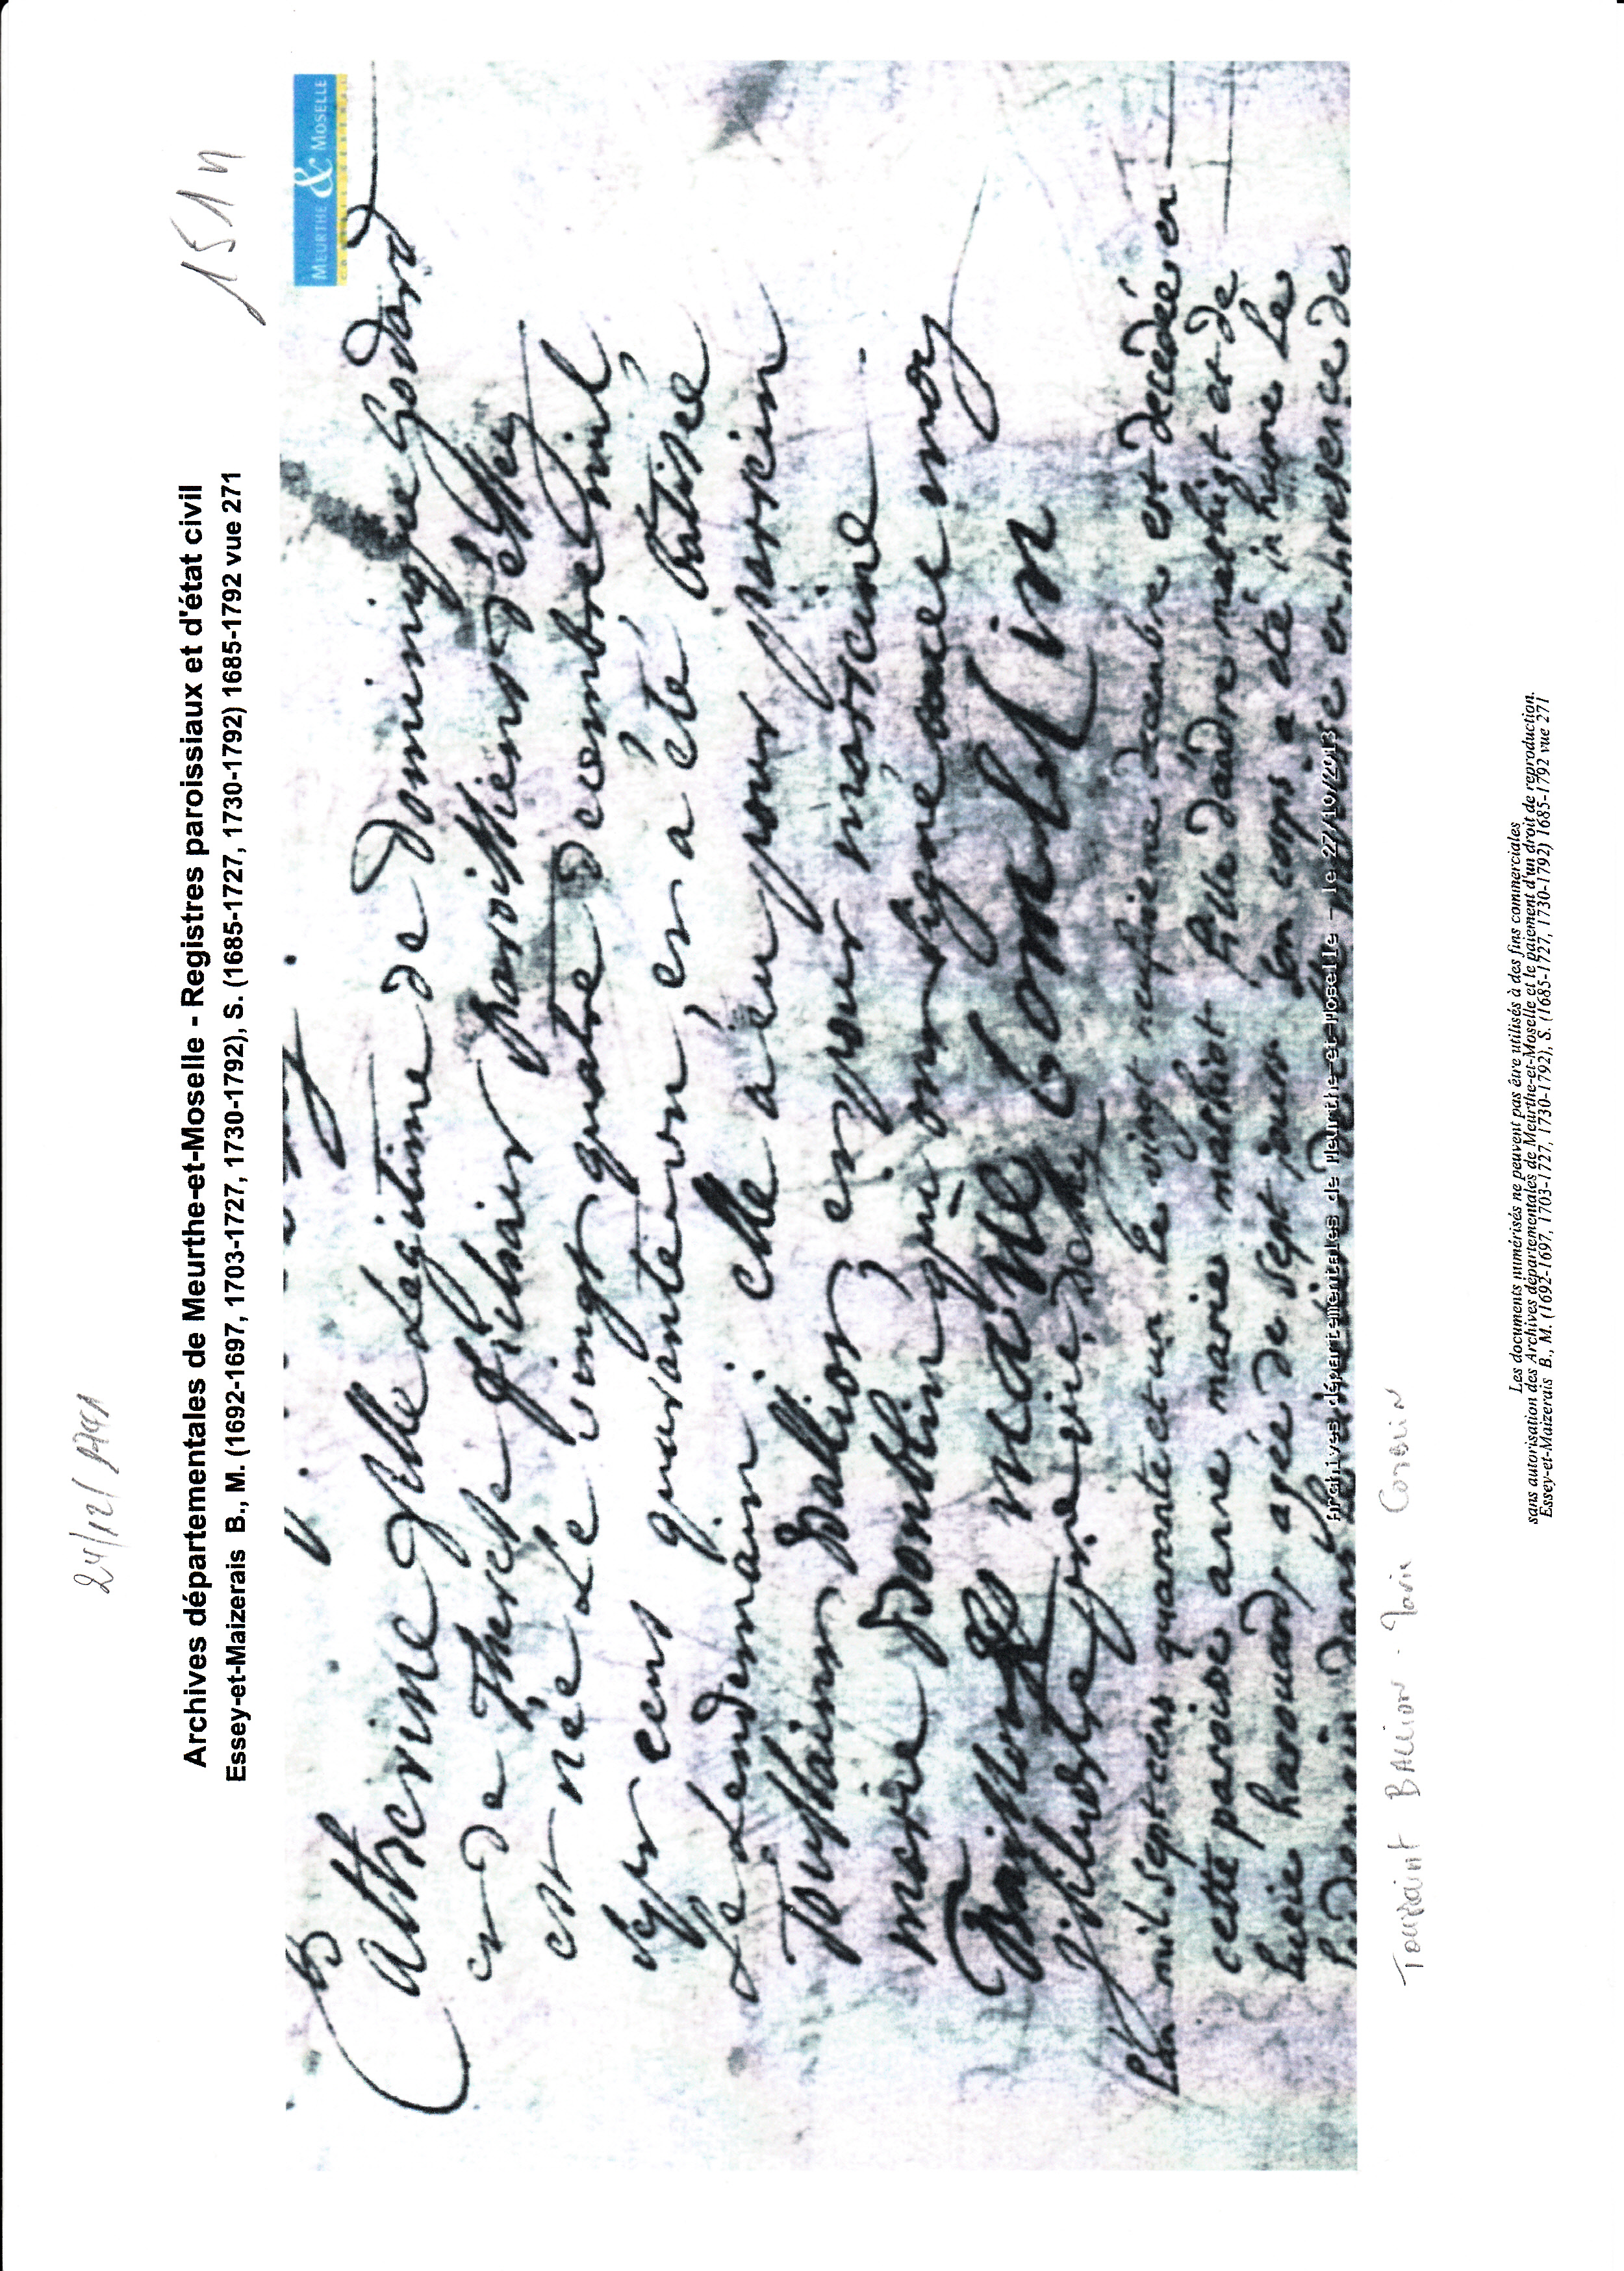 24/12/1741
151 N
Archives départementales de Meurthe-et-Moselle - Registres paroissiaux et d'état civil
Essey-et-Maizerais B., M. (1692-1697, 1703-1727, 1730-1792), S. (1685-1727, 1730-1792) 1685-1792 vue 271
MEURTHE & MOSELLE
CONSEIL GENERAL
Catherine fille legitime de Dominique Godard
et de Therese filiaire paroissiens d'essey
est née le vingt quatre decembre mil
sept cent quarante un et a été batisé
le lendemain elle a eu pour parrein
Toussaint Ballion et pour marreine
marie Comblin qui ont signé avec moy
Toussaint marie Comblin
l'an mil sept cens quarante et un le vingt neufvieme decembre est decedée en
cette paroisse anne marie mathiot fille d'andre mathiot et de
lucie harouard agée de sept son corps a eté inhumé le
lendemain dans en presence des
Archives départementales de Meurthe-et-Moselle - le 27/10/2013
Toussaint BALLION - Marie COMBLIN
Les documents numérisés ne peuvent pas être utilisés à des fins commerciales
sans autorisation des Archives départementales de Meurthe-et-Moselle et le paiement d'un droit de reproduction.
Essey-et-Maizerais B., M. (1692-1697, 1703-1727, 1730-1792), S. (1685-1727, 1730-1792) 1685-1792 vue 271